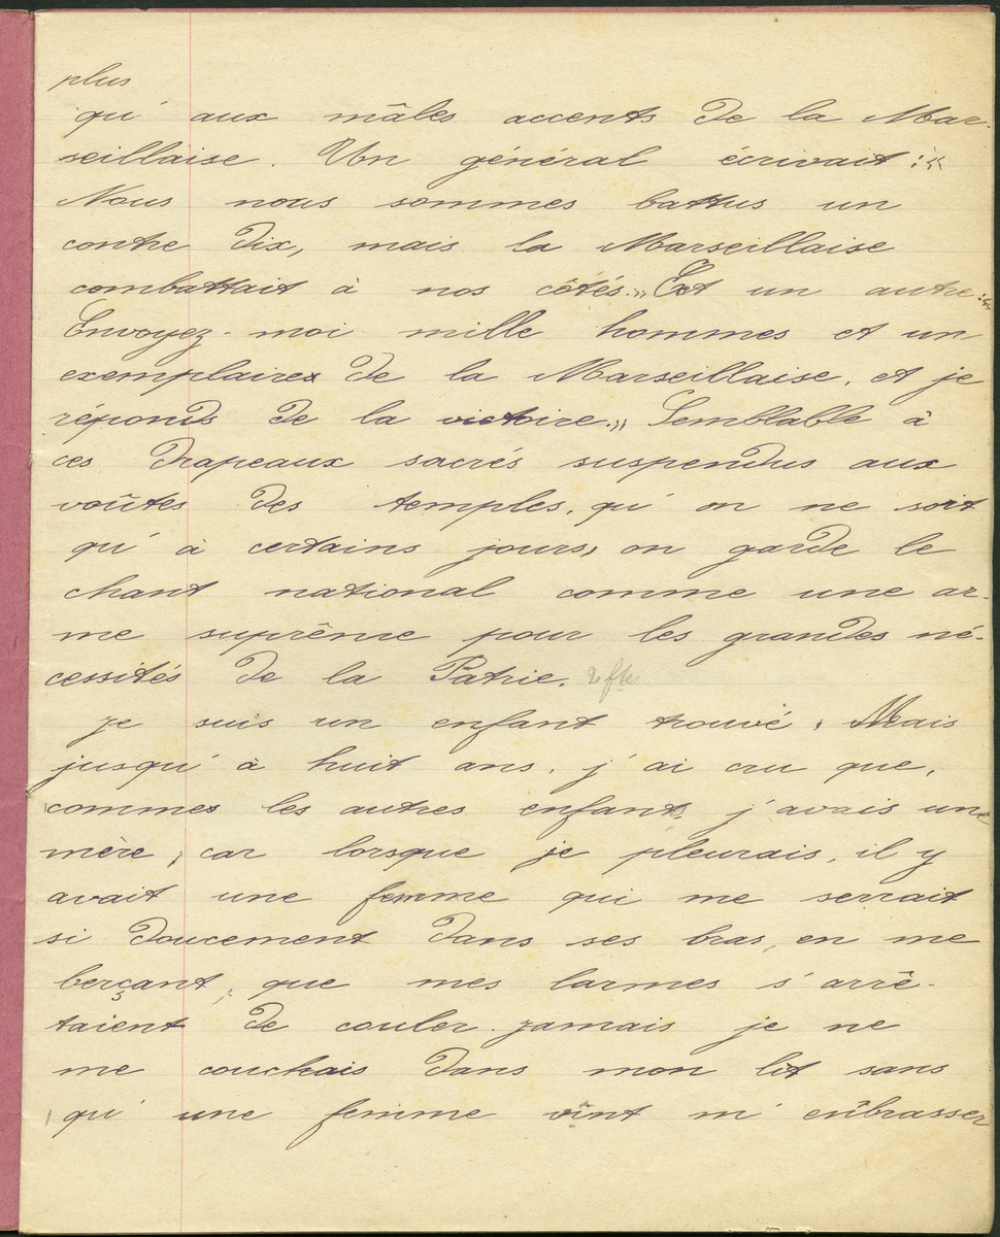 plus
qu'aux mâles accents de la Mar-
seillaise. Un général écrivait : «
Nous nous sommes battus un
contre dix, mais la Marseillaise
combattait à nos côtés.» Et un autre : «
Envoyez-moi mille hommes et un
exemplaires de la Marseillaise, et je
réponds de la victoire.» Semblable à
ces drapeaux sacrés suspendus aux
voûtes des temples, qu'on ne sort
qu'à certains jours, on garde le
chant national comme une ar-
me suprême pour les grandes né-
cessités de la Patrie.
Je suis un enfant trouvé. Mais
jusqu'à huit ans, j'ai cru que,
commes les autres enfants, j'avais une
mère, car lorsque je pleurais, il y
avait une femme qui me serrait
si doucement dans ses bras, en me
berçant, que mes larmes s'arrê-
taient de couler. Jamais je ne
me couchais dans mon lit sans
qu'une femme vînt m'embrasser